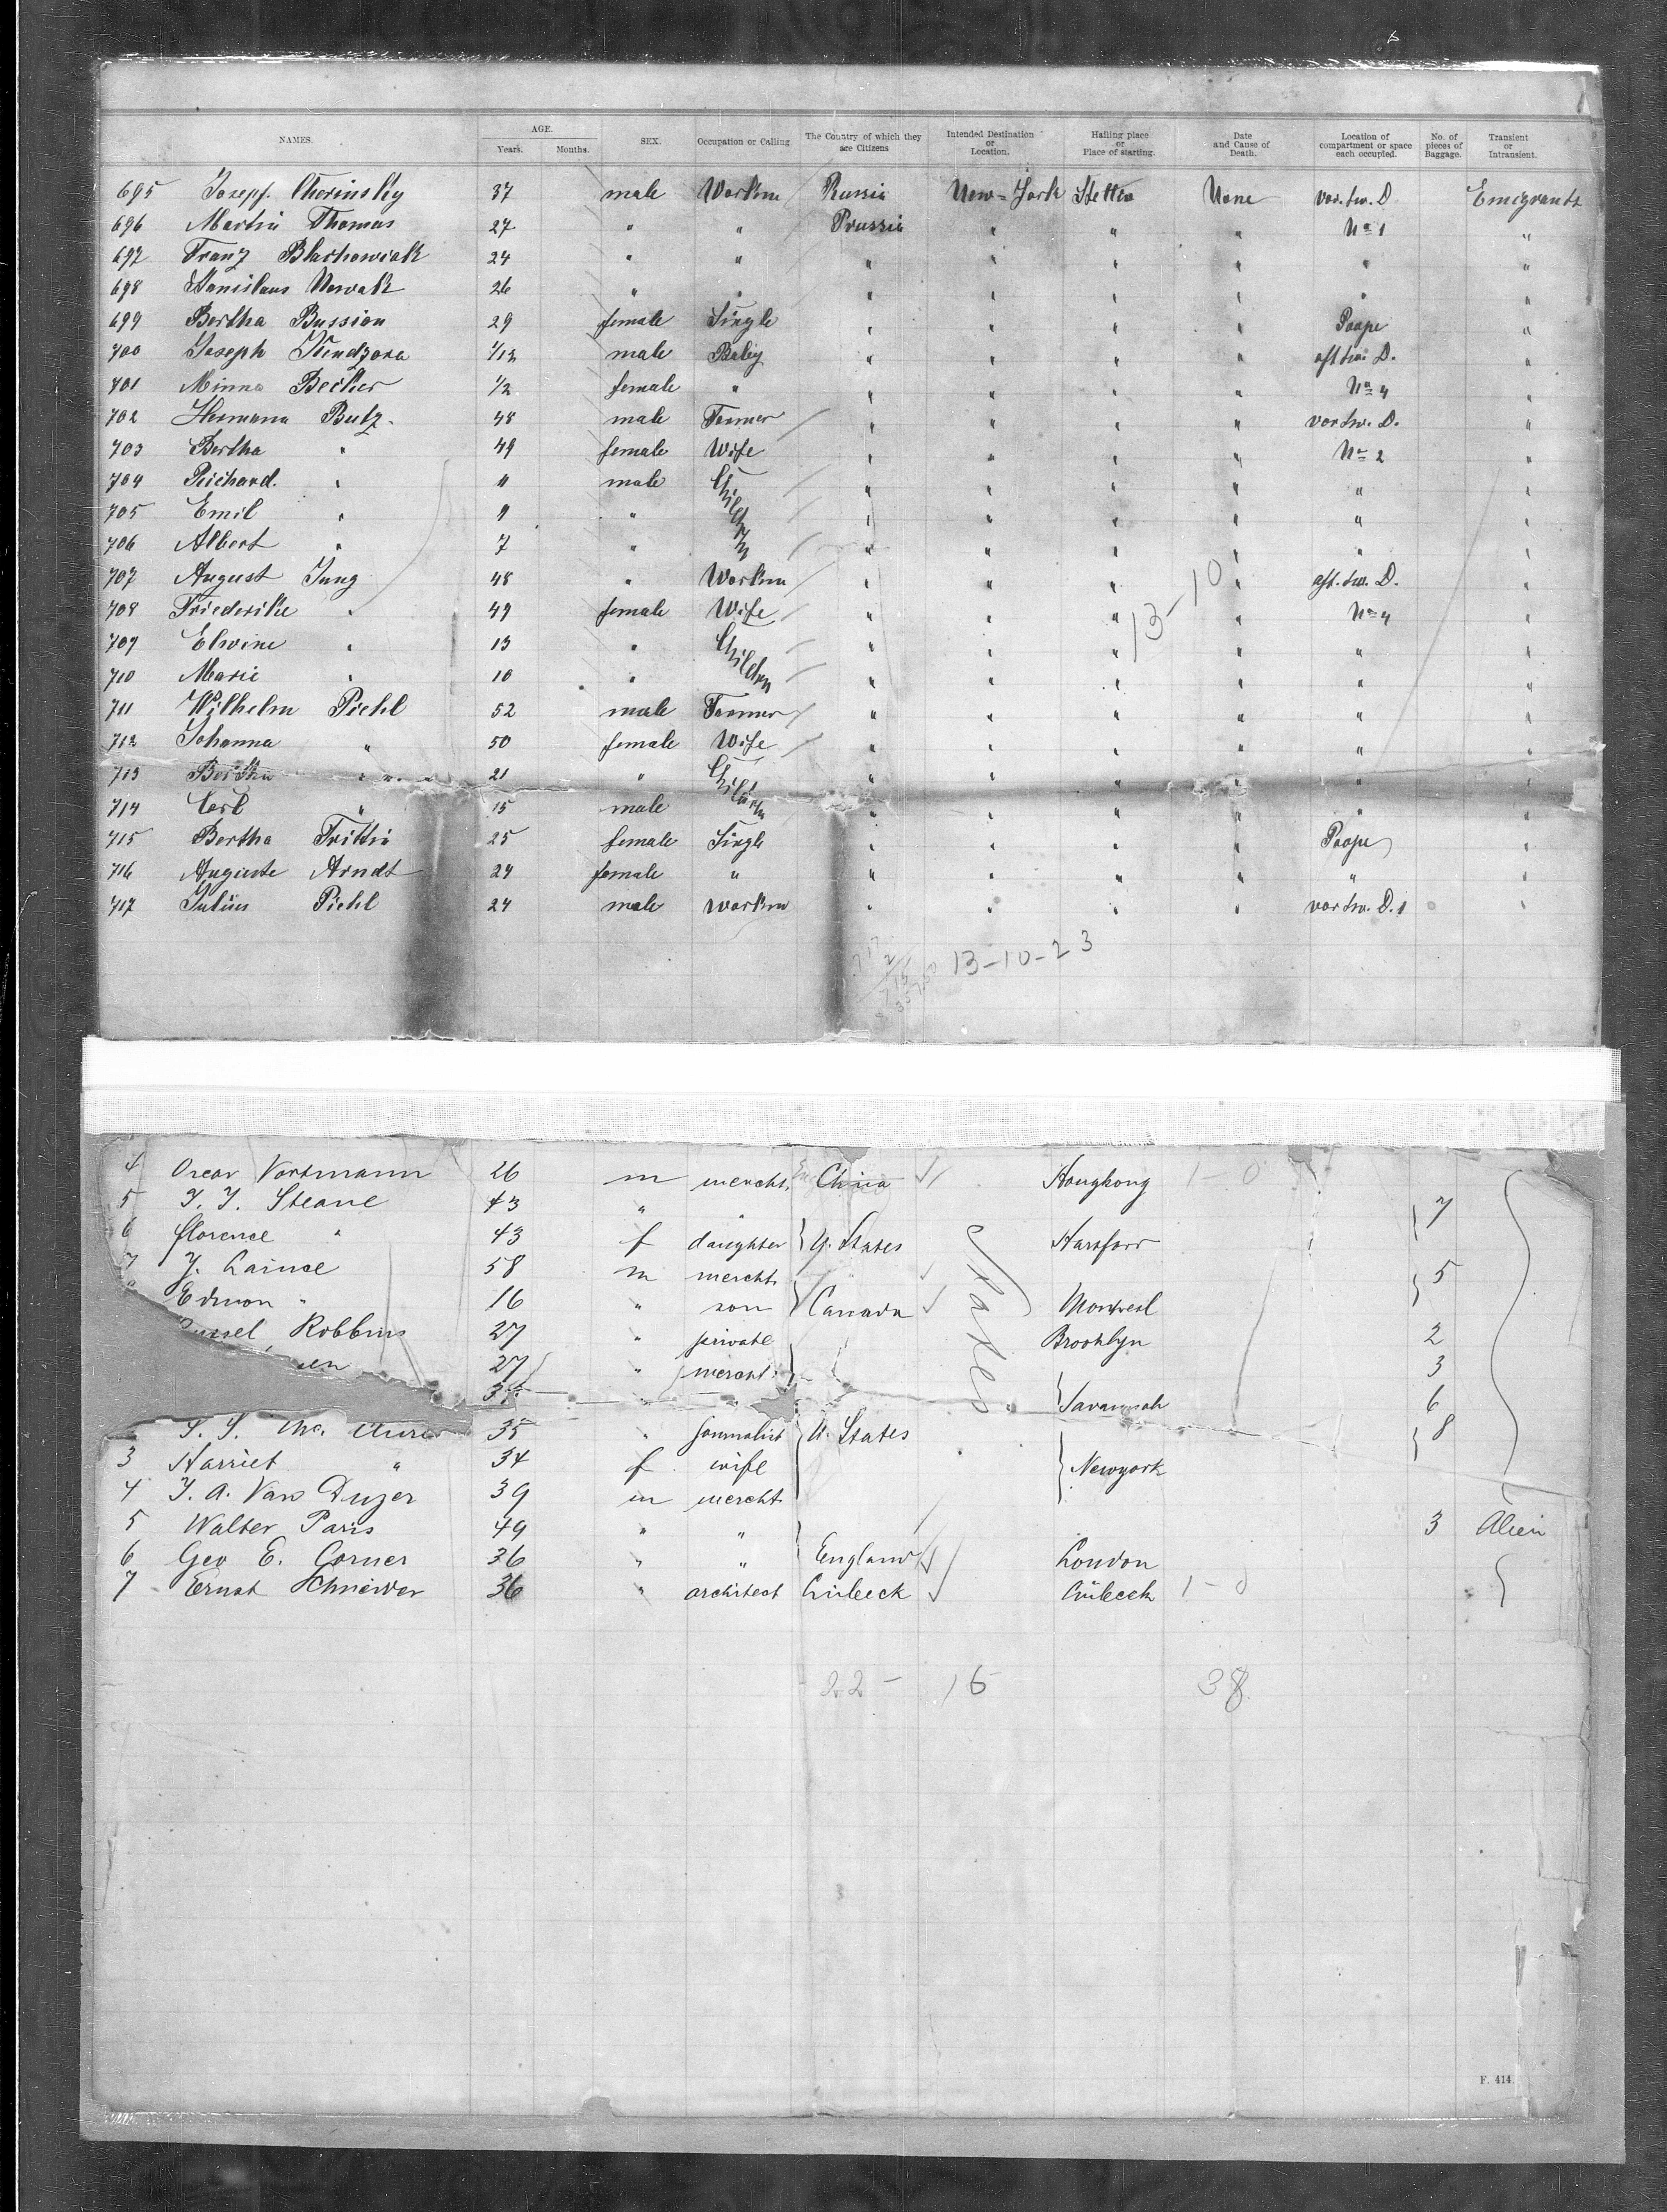 NAMES. AGE. Years. Months. SEX. Occupation or Calling The Country of which they are Citizens Intended Destination or Location. Hailing place or Place of starting. Date and Cause of Death. Location of compartment or space each occupied. No. of pieces of Baggage. Transient or Intransient.
695 37 male Workm Russia New-York Stettin None vor. tw. D Emigrants
696 Martin Thomas 27 " " Prussia " " " No 1 "
697 Franz Blachowiak 24 " " " " " " " "
698 Stanislaus Nowak 26 " " " " " " " "
699 Bertha Bussian 29 female Single " " " " Poope "
700 Joseph 1/12 male Baby " " " " aft tw. D. "
701 Minna Becker 1/2 female " " " " " No 4 "
702 Hermann Butz 48 male Farmer " " " " vor tw. D. "
703 Bertha " 49 female Wife " " " " No 2 "
704 Richard. " 11 male Children " " " " " "
705 Emil " 9 " " " " " " "
706 Albert " 7 " " " " " " "
707 August Jung 48 " Workm " " " " aft. tw. D. "
708 Friederike " 49 female Wife " " " " No 4 "
709 Elwine " 13 " Children " " " " " "
13-10
710 Marie " 10 " " " " " " "
711 Wilhelm Piehl 52 male Farmer " " " " " "
712 Johanna " 50 female Wife " " " " " "
713 Bertha " 21 " Children " " " " " "
714 Carl " 15 male " " " " " "
715 Bertha 25 female Single " " " " Poope "
716 Auguste Arndt 24 female " " " " " " "
717 Julius Piehl 24 male workm " " " " vor tw. D. 1 "
13-10-23
4 Oscar Vortmann 26 m mercht. China Hongkong 1-0
5 43 " " 7
6 Florence " 43 f daughter U. States Hartford
7 58 m mercht. 5
Edmon " 16 " son Canada Montreal
Robbins 27 " private Brooklyn 2
27 " mercht. 3
States
Savannah 6
S. S. Mc. 35 " journalist U. States 8
3 Harriet " 34 f wife Newyork
4 Van Duzer 39 m mercht.
5 Walter Paris 49 " " 3 Alien
6 Geo E. Corner 36 " " England London
7 Ernst Schneider 36 " architect Lübeck Lübeck 1-0
22- 16 38
F. 414.